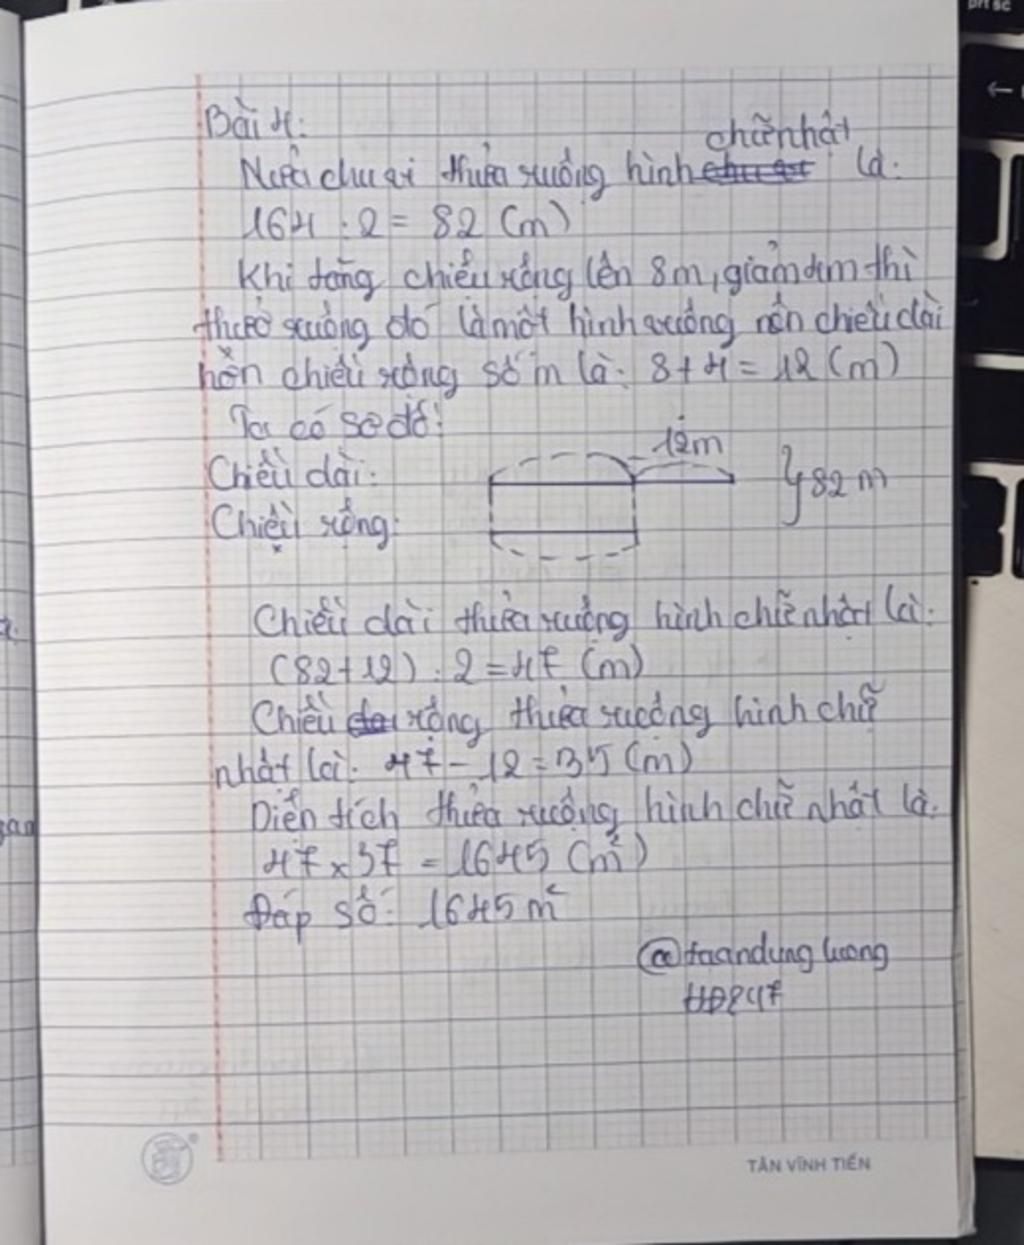 Bài 4:
Nửa chu vi thửa ruộng hình chữ nhật là:
164 : 2 = 82 (m)
Khi tăng chiều rộng lên 8m, giảm 4m thì
thửa ruộng đó là một hình vuông nên chiều dài
hơn chiều rộng số m là: 8+4 = 12 (m)
Ta có sơ đồ:
12m
Chiều dài:
82 m
Chiều rộng:
Chiều dài thửa ruộng hình chữ nhật là:
(82+12) : 2 = 47 (m)
Chiều rộng thửa ruộng hình chữ
nhật là: 47 - 12 = 35 (m)
Diện tích thửa ruộng hình chữ nhật là:
47 x 37 = 1645 (m²)
Đáp số: 1645 m²
@taandung luong
TÂN VĨNH TIẾN
prt sc